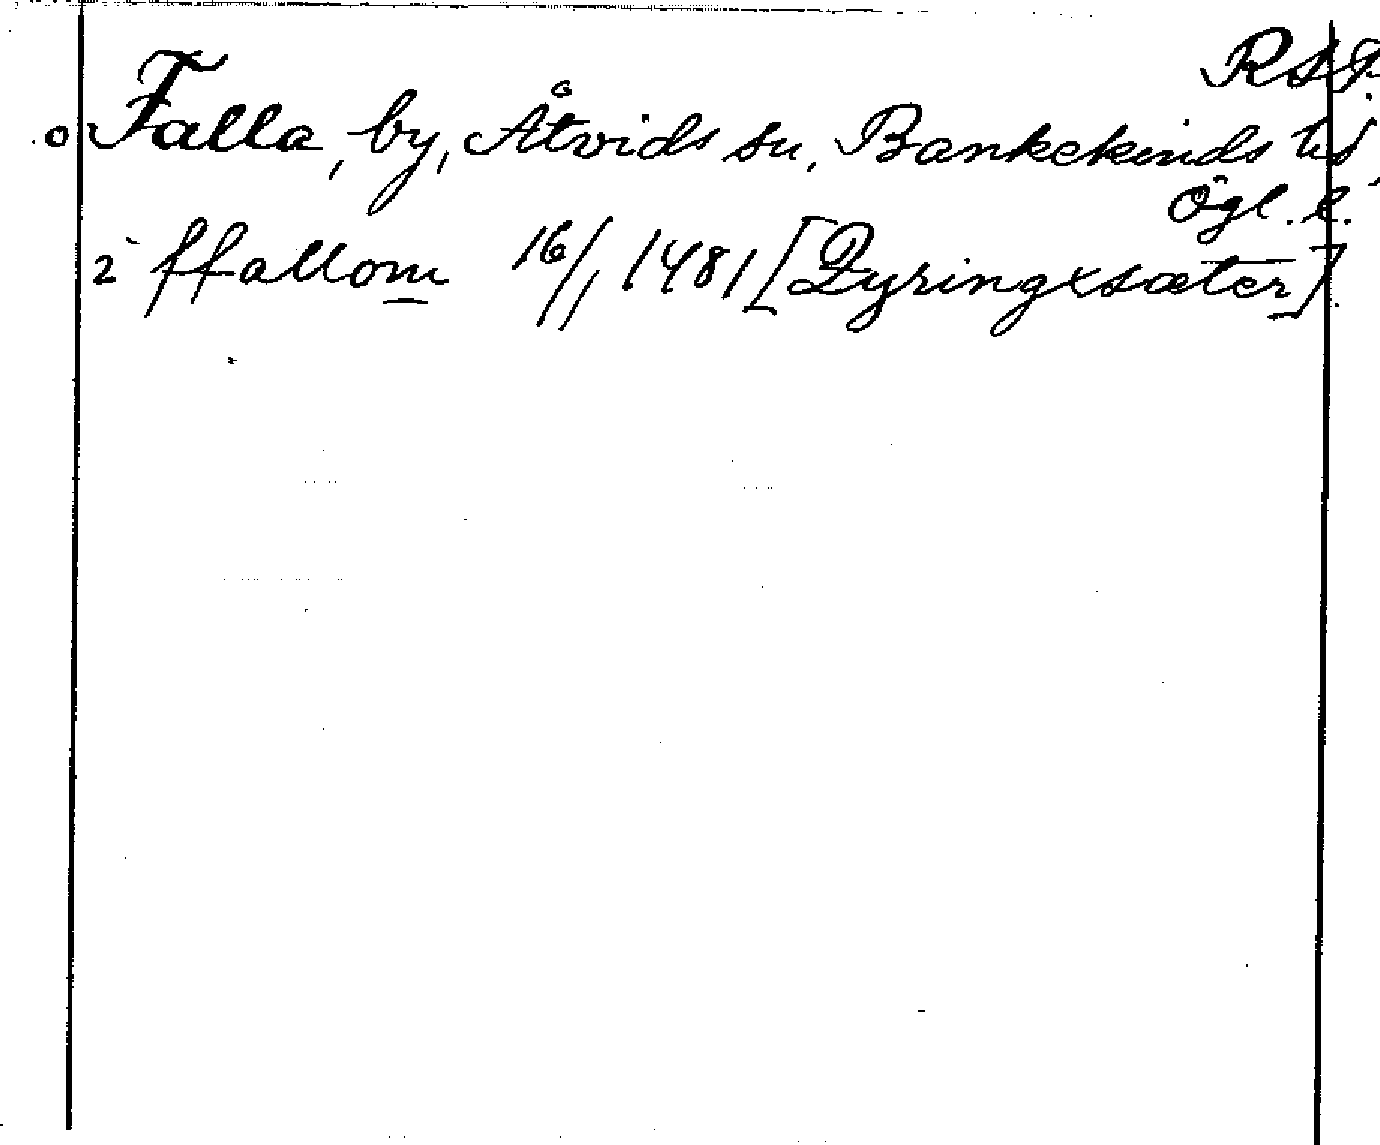 RSF.
Falla, by, Åtvids sn, Bankekinds hd,
Ögl. l.
2 ffallom 16/1 1481 [Dyringxsæter].